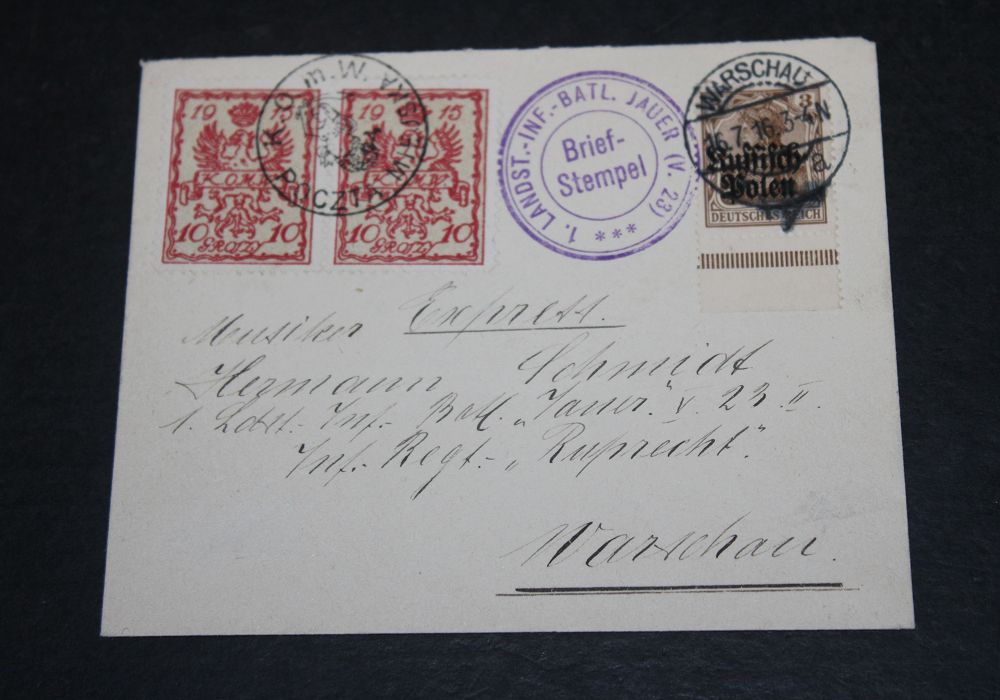 19 15
K.O.M.W.
10 10
GROSZY
19 15
K.O.M.W.
10 10
GROSZY
K.O.m.W. POCZTA MIEJSKA
1. LANDST.-INF.-BATL. JAUER (V. 23)
Brief-
Stempel
***
WARSCHAU
7.16. 3-4N
a
3
Russisch-
Polen
DEUTSCHES REICH
Express.
Musiker
Hermann Schmidt
1. Ldst.-Inf. Batl. „Jauer." V. 23. II.
Inf.- Regt.- „Ruprecht".
Warschau.